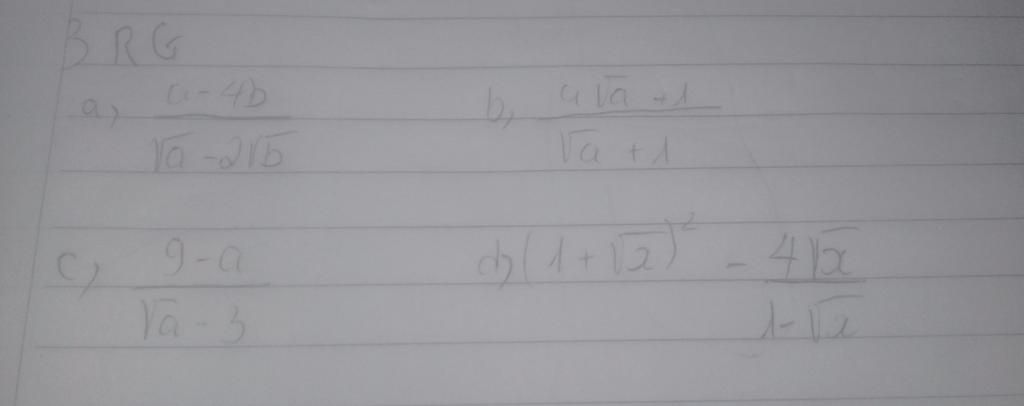 3 RG
a, (a-4b)/(√a-2√b) b, (a√a+1)/(√a+1)
c, (9-a)/(√a-3) d, (1+√x)² - (4√x)/(1-√x)